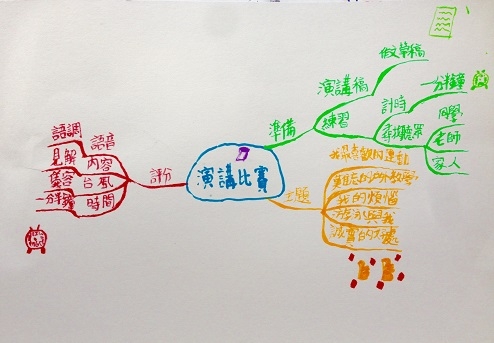 演講比賽
準備
演講稿
做草稿
練習
計時
一分鐘
尋找聽眾
同學
老師
家人
主題
我最喜歡的運動
難忘的戶外教學
我的煩惱
我
減重的好處
評分
語音
語調
內容
見解
台風
儀容
時間
一分半鐘